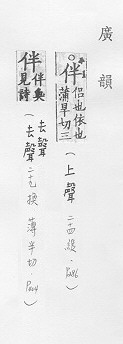 廣韻
伴 侶也依也蒲旱切三
（上聲 二十四緩·P286）
伴 伴奐見詩
（去聲 二十九換 薄半切·P404）